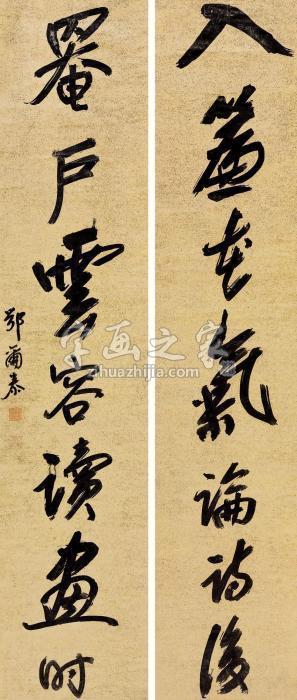 入簾花氣論詩後
罨戶雲容讀畫時
鄂爾泰
字画之家
zihuazhijia.com